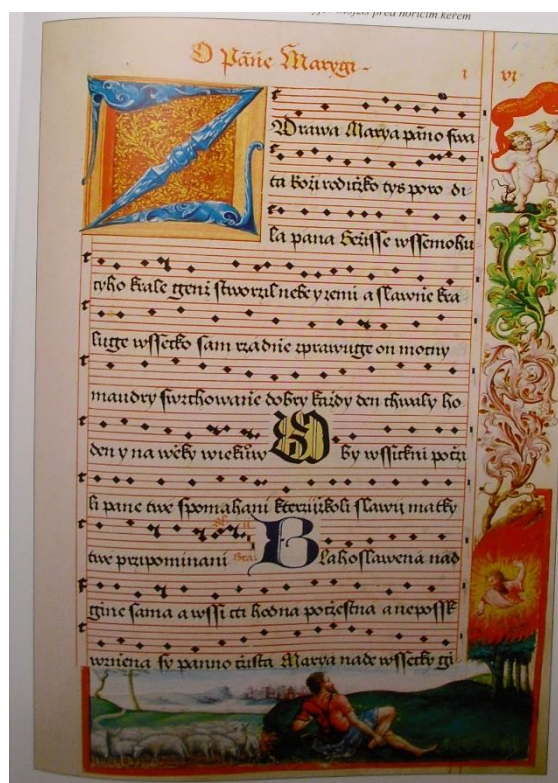 Mojžíš před hořícím keřem
O Panie Marygi
Zdrawa Marya pãno swa
ta Boži rodičko tys poro di
la pana Gežisse wssemohu
cyho krale genž stworzil nebe y zemi a slawnie kra
luge wssecko sam rzadnie zprawuge on mocny
maudry swrchowanie dobry každy den chwaly ho
den y na wěky wiekůw O by wssickni počzu
li pane twe spomahani kterzijžkoli slawij matky
twe przipominani Blahoslawena nad
gine sama a wssi cti hodna počestna a neposk
wrniena sy panno czista Marya nade wssecky gi